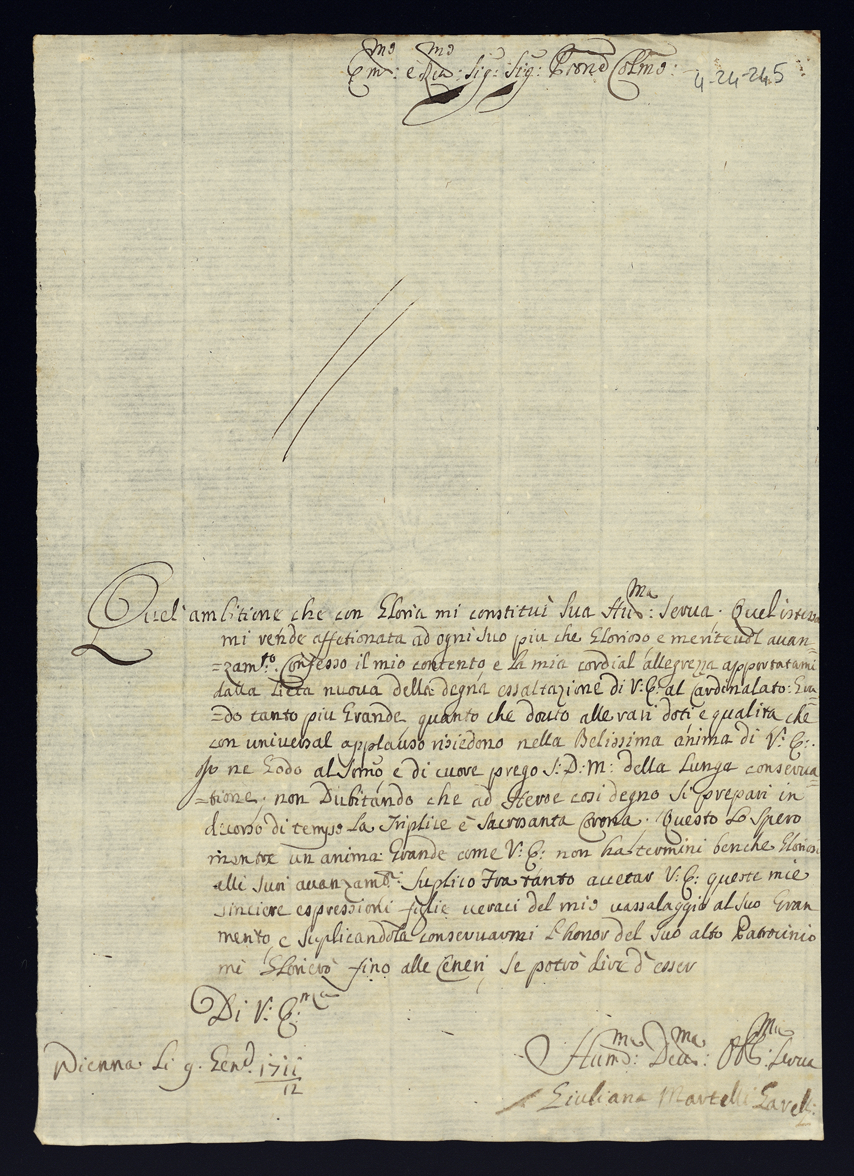 Em:mo e Rm:mo Sig: Sig: Prone Colmo:
4-24-24.5
Quel'ambitione che con Gloria mi constitui sua Hu:ma serua. Quel istessa
mi rende affetionata ad ogni suo piu che Glorioso e meriteuol auan=
=zam:to. Confesso il mio contento e la mia cordial allegrezza apportatami
dalla lieta nuoua della degna essaltazione di V: E: al Cardinalato: Gra=
=do tanto piu Grande quanto che douto alle rari doti e qualità che
con universal applauso risiedono nella Belissima anima di V: E:.
Io ne Godo al somo e di cuore prego S: D: M: della Lunga conserua=
=tione; non Dubitando che ad Heroe cosi degno si prepari in
decorso di tempo La Triplice e Sacrosanta Corona. Questo Lo Spero
mentre un anima Grande come V: E: non ha termini benche Gloriosi
alli suoi auanzam:ti. Suplico Fra tanto accetar V: E: queste mie
sinciere espressioni figlie ueraci del mio uassalaggio al suo Gran
mento, e Suplicandola conseruarmi L'honor del suo alto Patrocinio
mi Glorierò fino alle Ceneri, se potrò dire d'esser
Di V: E:nza
Vienna Li 9. Gen: 1711/12
Hum:ma Deu:ma: Obl:ma Serua
Giuliana Martelli